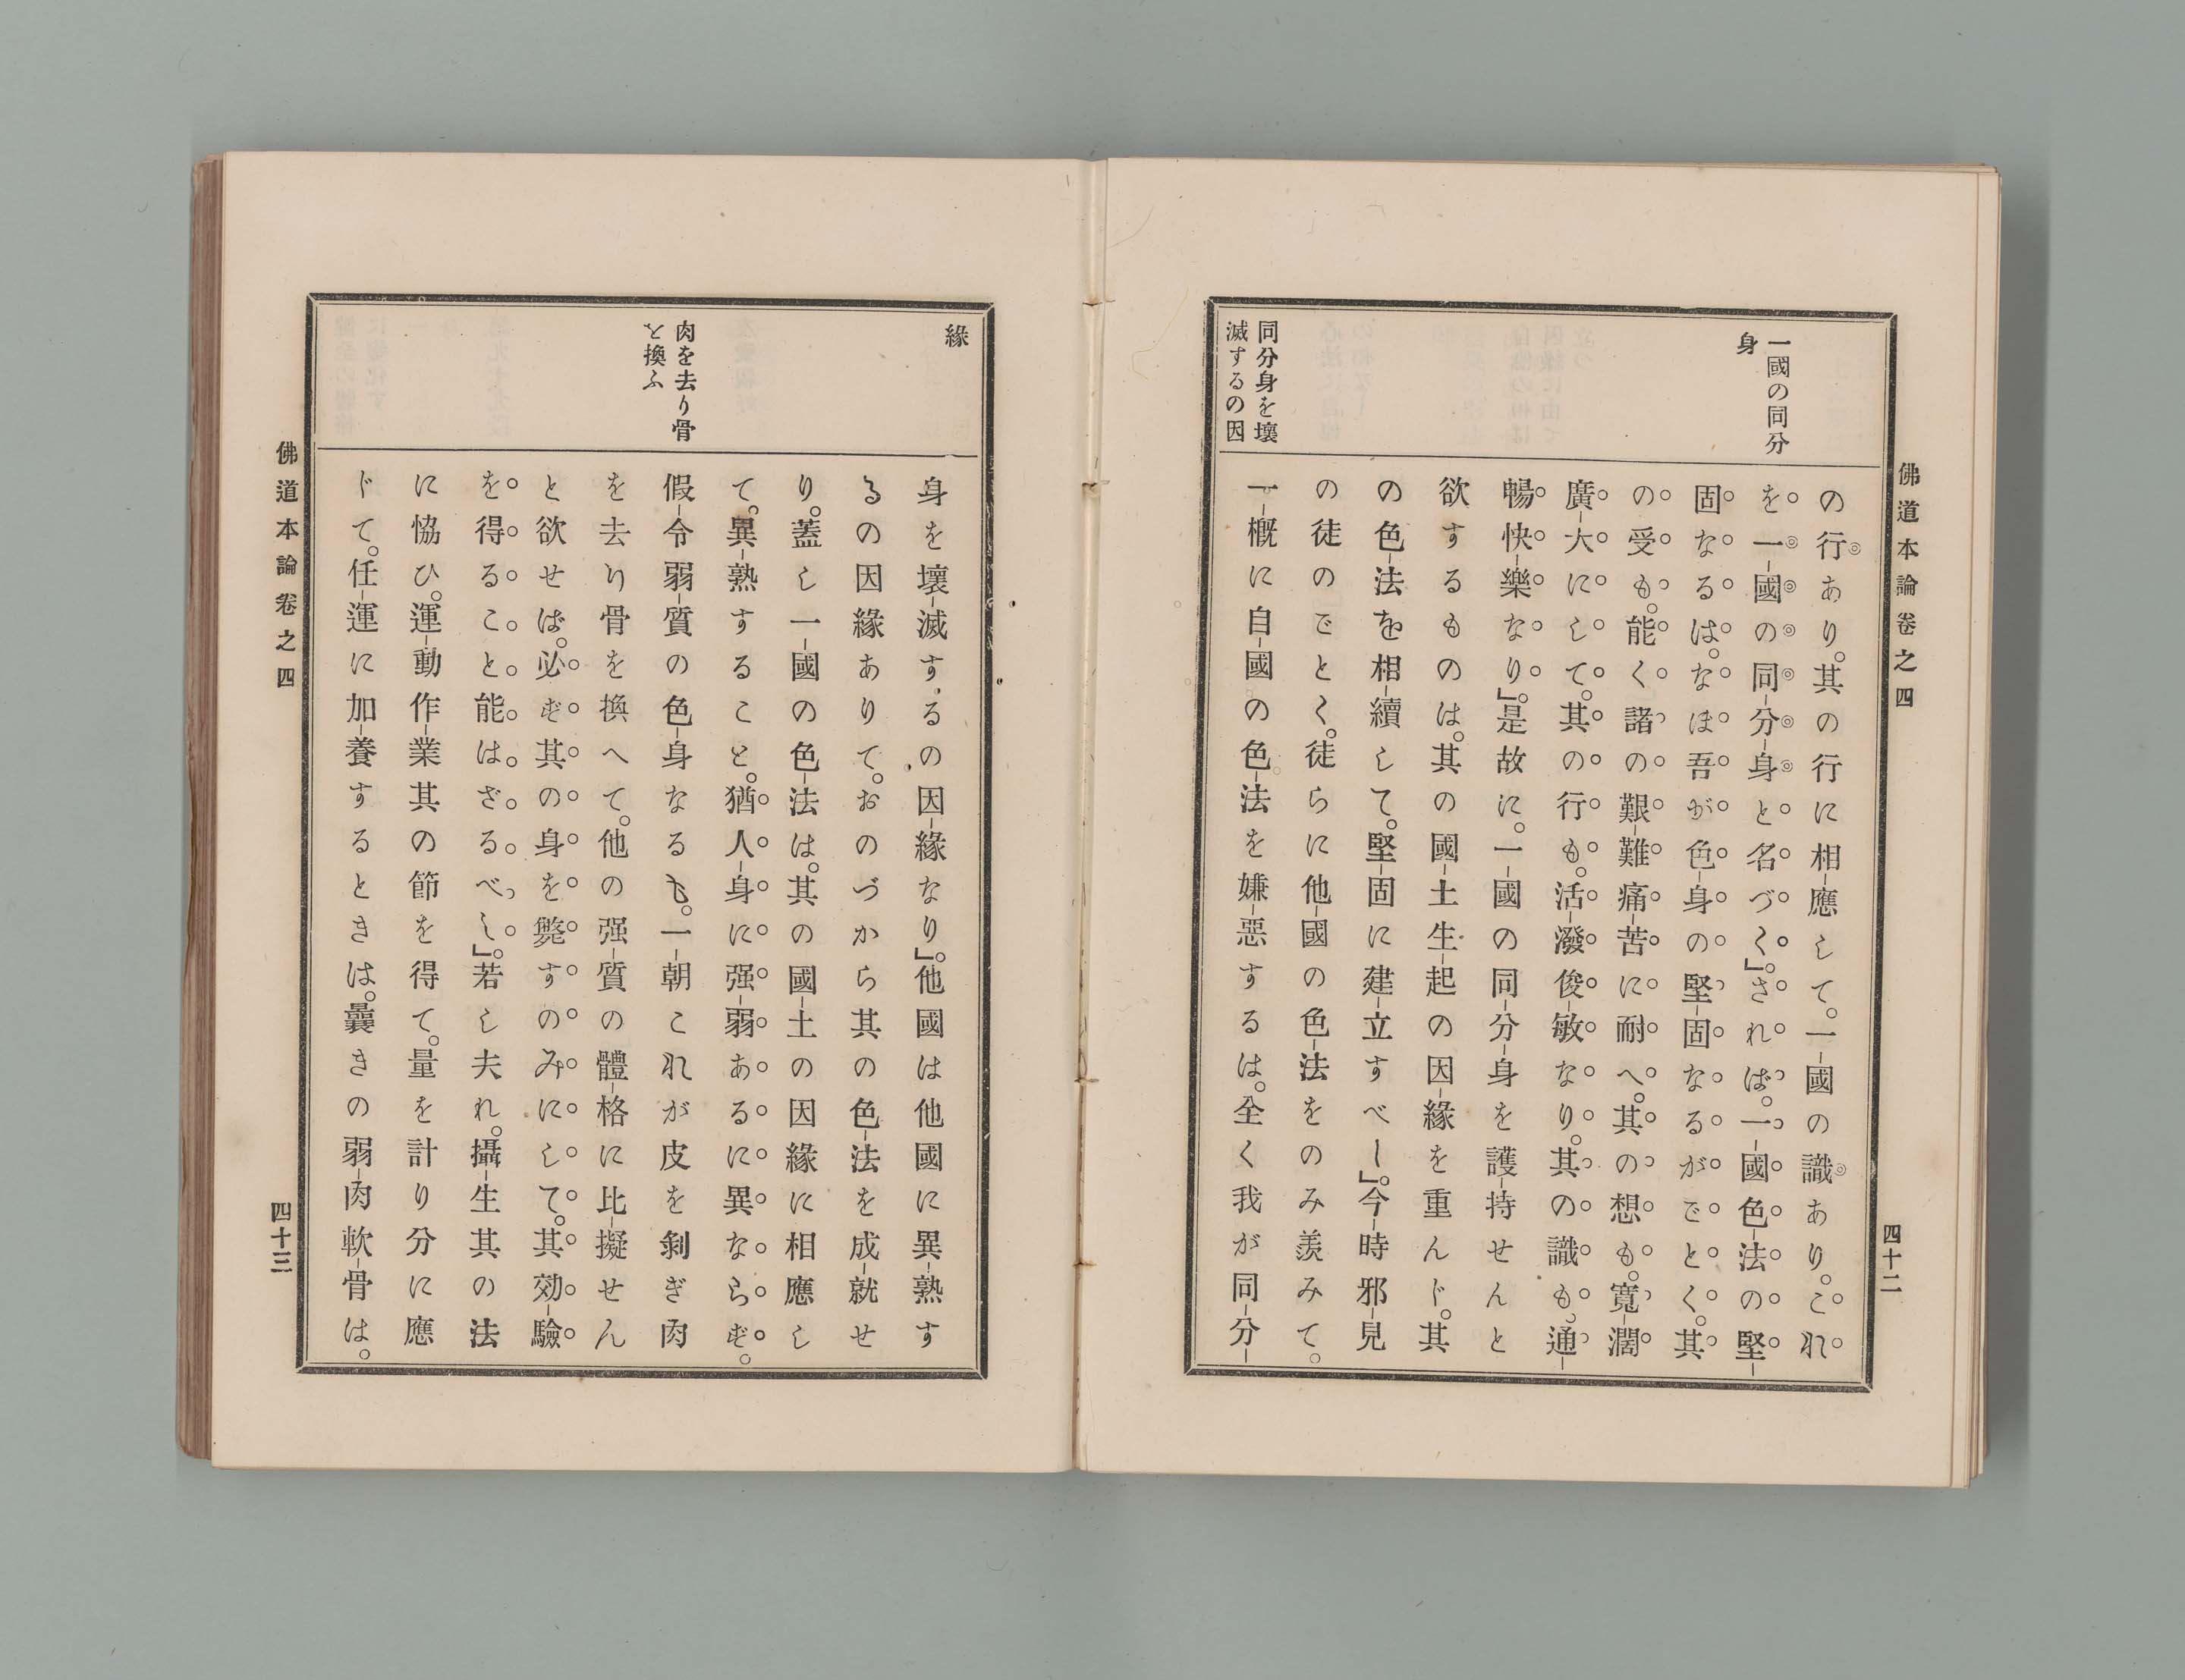 佛道本論卷之四
四十二
一國の同分
身
の行あり。其の行に相應して。一國の識あり。これ
を一國の同分身と名づく」。されば。一國色法の堅
固なるは。なほ吾が色身の堅固なるがごとく。其
の受も。能く諸の艱難痛苦に耐へ。其の想も。寬濶
廣大にして。其の行も。活潑俊敏なり。其の識も。通
暢快樂なり」。是故に。一國の同分身を護持せんと
欲するものは。其の國土生起の因緣を重んじ。其
の色法を相續して。堅固に建立すべし」。今時邪見
の徒のごとく。徒らに他國の色法をのみ羨みて。
一概に自國の色法を嫌惡するは。全く我が同分
同分身を壞
滅するの因
緣
肉を去り骨
を換ふ
身を壞滅するの因緣なり」。他國は他國に異熟す
るの因緣ありて。おのづから其の色法を成就せ
り。蓋し一國の色法は。其の國土の因緣に相應し
て。異熟すること。猶人身に强弱あるに異ならず。
假令弱質の色身なるも。一朝これが皮を剝ぎ肉
を去り骨を換へて。他の强質の體格に比擬せん
と欲せば。必ず其の身を斃すのみにして。其効驗
を得ること能はざるべし」。若し夫れ。攝生其の法
に恊ひ。運動作業其の節を得て。量を計り分に應
じて。任運に加養するときは。曩きの弱肉軟骨は。
佛道本論卷之四
四十三